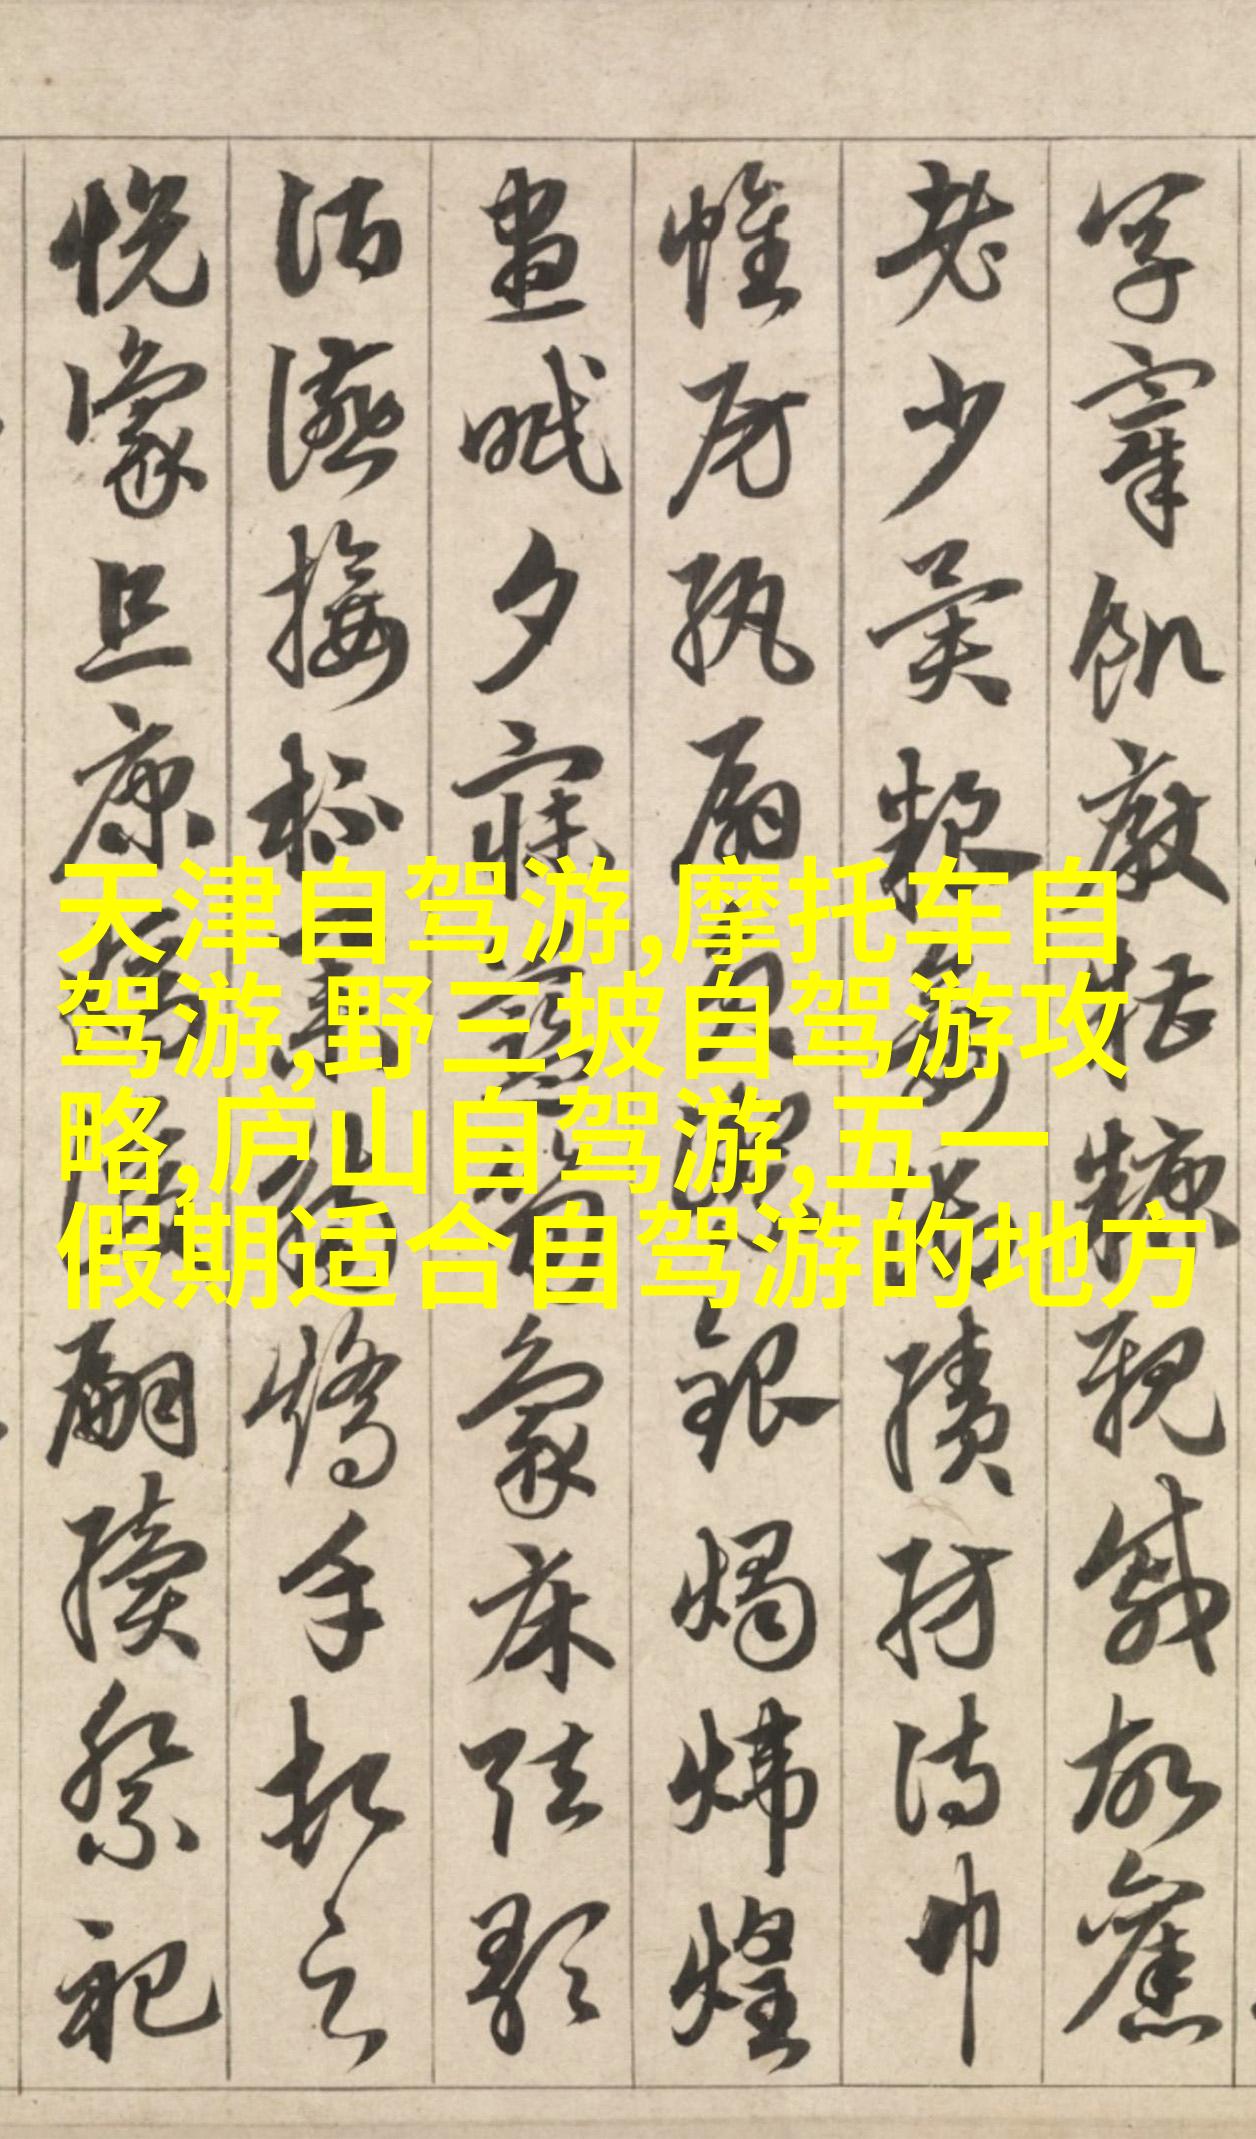 天津自驾游,摩托车自
驾游,野三坡自驾游攻
略,庐山自驾游,五一
假期适合自驾游的地方
宰飢厭糟糠親戚故舊
老少異糧妾御績紡侍巾
帷房紈扇員潔銀燭煒煌
晝眠夕寐藍筍象床弦歌
酒讌接杯舉觴矯手頓足
悅豫且康嫡後嗣續祭祀